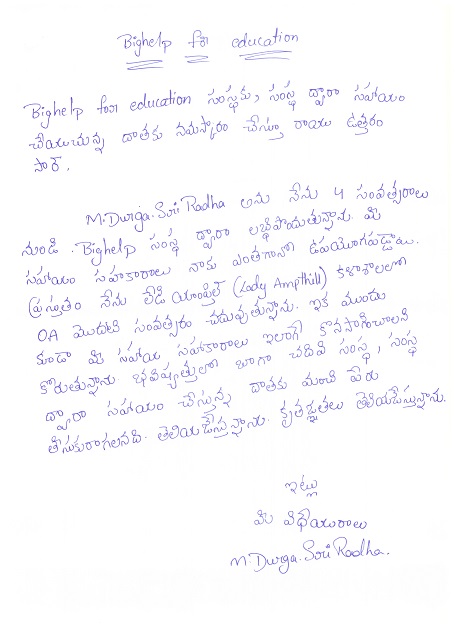 Bighelp for education
Bighelp foor education సంస్థకు, సంస్థ ద్వారా సహాయం
చేయుచున్న దాతకు నమస్కారం చేస్తూ రాయు ఉత్తరం
సార్.
M.Durga.Sori Radha అను నేను 4 సంవత్సరాలు
నుండి. Bighelp సంస్థ ద్వారా లబ్ధిపొందుతున్నాను. మీ
సహాయం సహకారాలు నాకు ఎంతగానో ఉపయోగపడ్డాయి.
ప్రస్తుతం నేను లేడీ యాంప్తిల్ (Lady Ampthill) కళాశాలలో
OA మొదటి సంవత్సరం చదువుతున్నాను. ఇక ముందు
కూడా మీ సహాయ సహకారాలు ఇలాగే కొనసాగించాలని
కోరుతున్నాను. భవిష్యత్తులో బాగా చదివి సంస్థ, సంస్థ
ద్వారా సహాయం చేస్తున్న దాతకు మంచి పేరు
తీసుకురాగలనని. తెలియజేస్తున్నాను. కృతజ్ఞతలు తెలియజేస్తున్నాను.
ఇట్లు
మీ విధేయురాలు
M.Durga.Sori Radha.